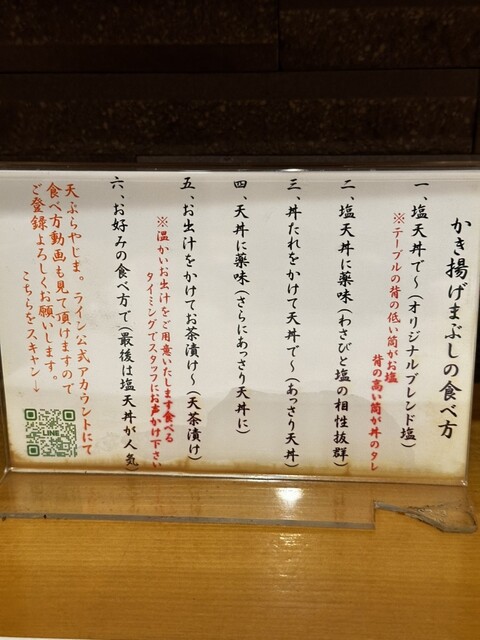 かき揚げまぶしの食べ方
一、塩天丼で〜(オリジナルブレンド塩)
※テーブルの背の低い筒がお塩
背の高い筒が丼のタレ
二、塩天丼に薬味(わさびと塩の相性抜群)
三、丼たれをかけて天丼で〜(あっさり天丼)
四、天丼に薬味(さらにあっさり天丼に)
五、お出汁をかけてお茶漬け〜(天茶漬け)
※温かいお出汁をご用意いたします食べる
タイミングでスタッフにお声かけ下さい
六、お好みの食べ方で(最後は塩天丼が人気)
天ぷらやじま。ライン公式アカウントにて
食べ方動画も見て頂けますので
ご登録よろしくお願いします。
こちらをスキャン→
LINE